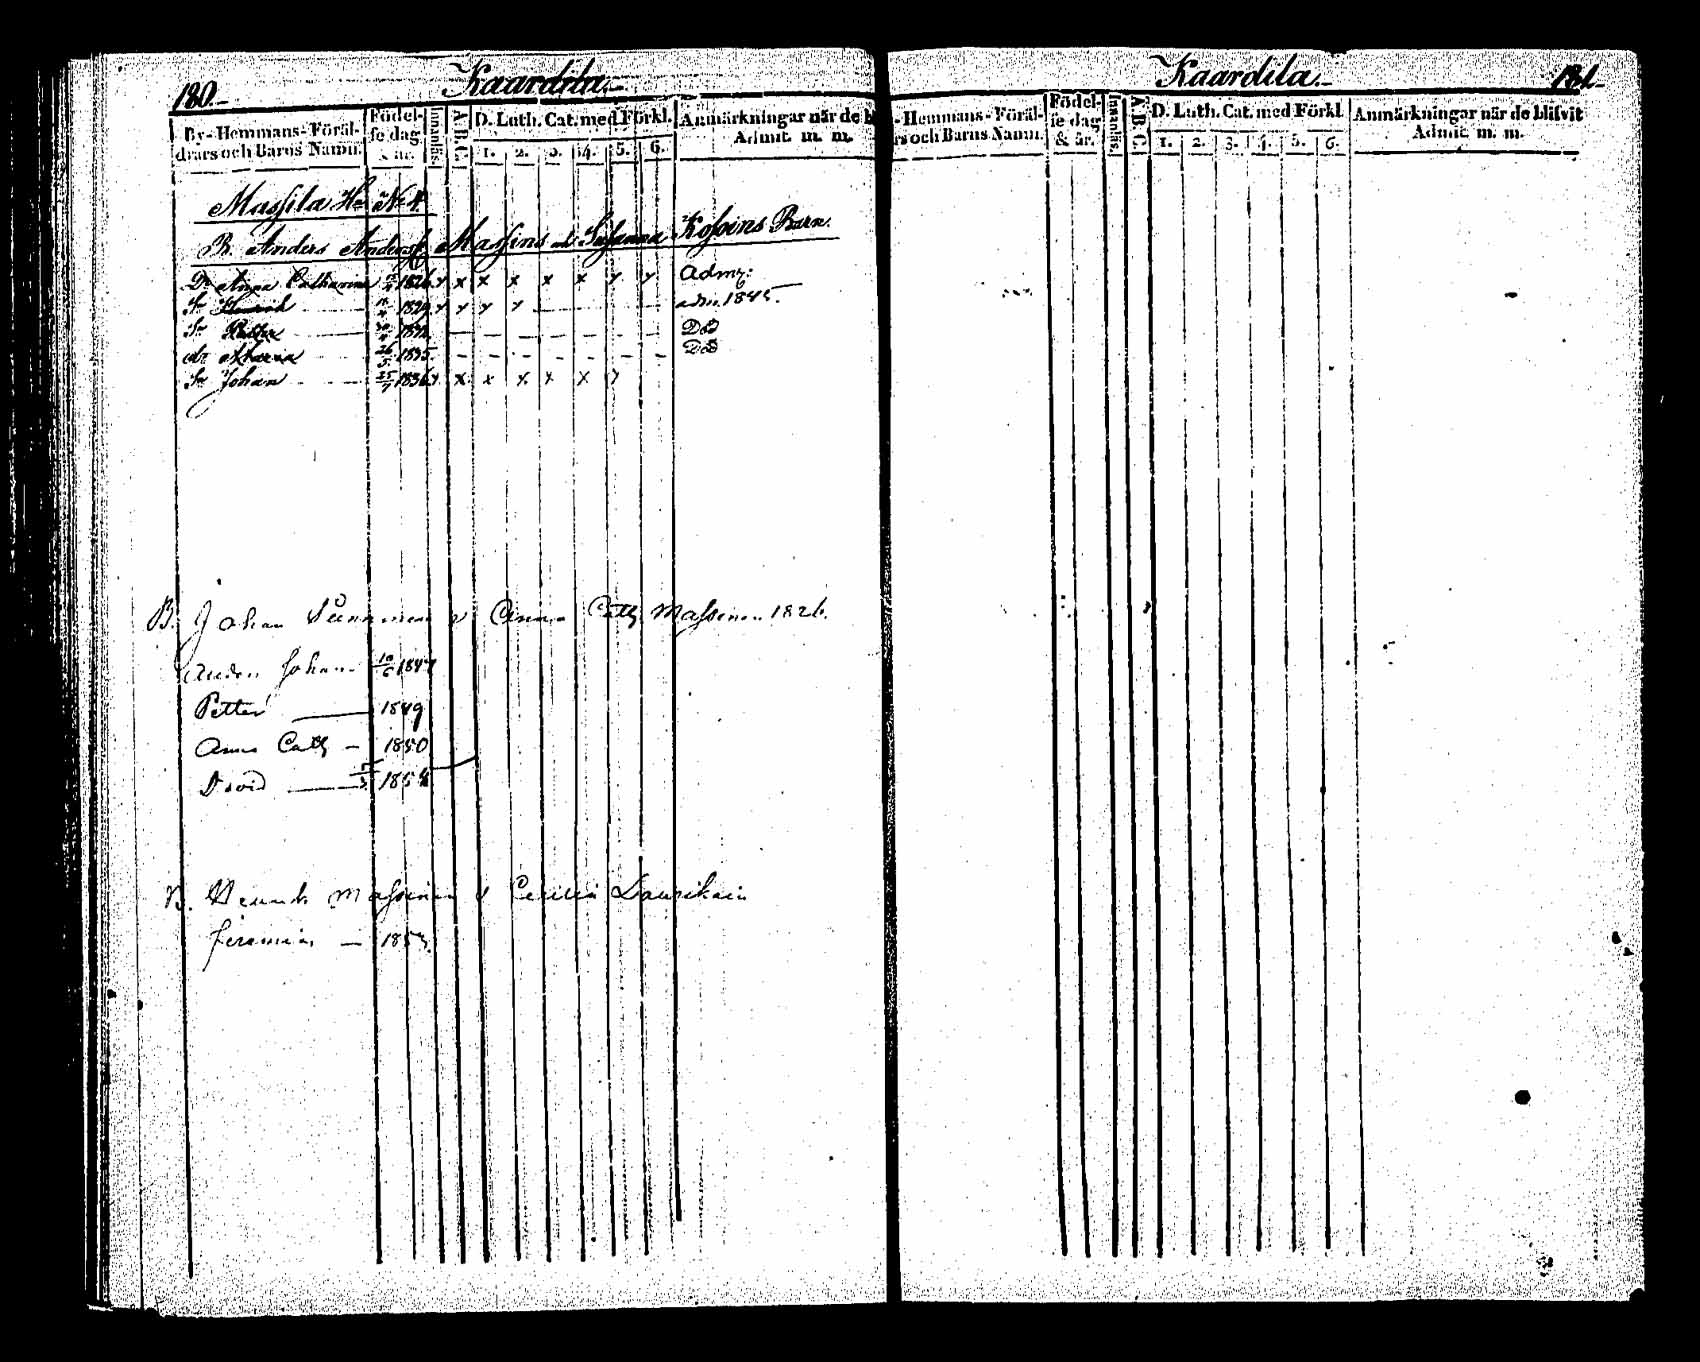 180.
Kaardila.
By-Hemmans-Föräl-
drars och Barns Namn.
Födel-
se dag
& år.
Innanläs.
A.B.C.
D. Luth. Cat. med Förkl.
1. 2. 3. 4. 5. 6.
Anmärkningar när de b
Admit. m. m.
Massila Hn No 4.
B. Anders Anderss. Massins och Susanna Kosoins Barn.
Dr Anna Catharina 1826. x x x x x x x x Adm:
Sn Henrik 1829 x x x x adm. 1845.
Sn Petter 1832 Död
dr 26/5 1835. Död
Sn Johan 25/7 1836 x x x x x x x
B. Johan Sunninen & Anna Cath Massinen 1826.
Anders Johan 10/6 1847
Petter 1849
Anna Cath 1850
David 1854
B. Henrik Massinen & Cecilia Laurikain
Jeremias 185
Kaardila.
181.
- Hemmans-Föräl-
rs och Barns Namn.
Födel-
se dag
& år.
Innanläs.
A B C.
D. Luth. Cat. med Förkl.
1. 2. 3. 4. 5. 6.
Anmärkningar när de blifvit
Admit. m. m.